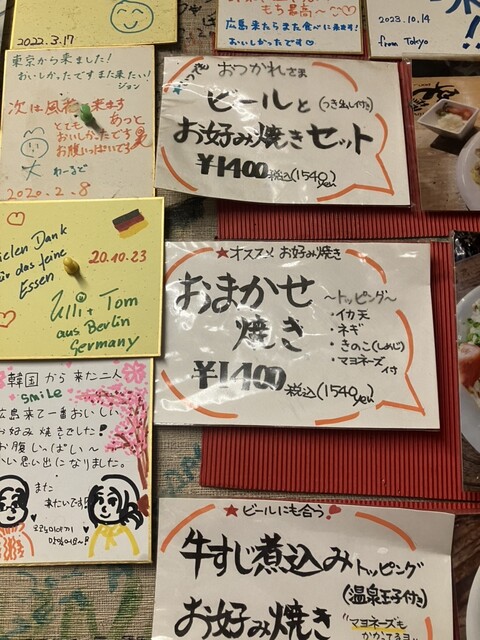 2022.3.17
もち最高〜
広島来たらまた食べに来ます!
おいしかったです♡
2023.10.14
from Tokyo
東京から来ました!
おいしかったですまた来たい!
ジョン
次は風花と来ます
とても あっと
おいしかったです
お腹いっぱいです
2020.2.8
おつかれさま
ビールと(つき出し付)
お好み焼きセット
¥1400税込(1540)yen
ielen Dank
für das feine
Essen
20.10.23
Ulli + Tom
aus Berlin
Germany
★オススメ お好み焼き
おまかせ
焼き
¥1400税込(1540)yen
〜トッピング〜
・イカ天
・ネギ
・きのこ(しめじ)
・マヨネーズ付
韓国から来た二人
smile
広島来て一番おいしい
お好み焼きでした!
お腹いっぱい〜
いい思い出になりました。
また
来たいです!
★ビールにも合う!
牛すじ煮込みトッピング
(温泉玉子付)
お好み焼き
"マヨネーズも
かかってるヨ